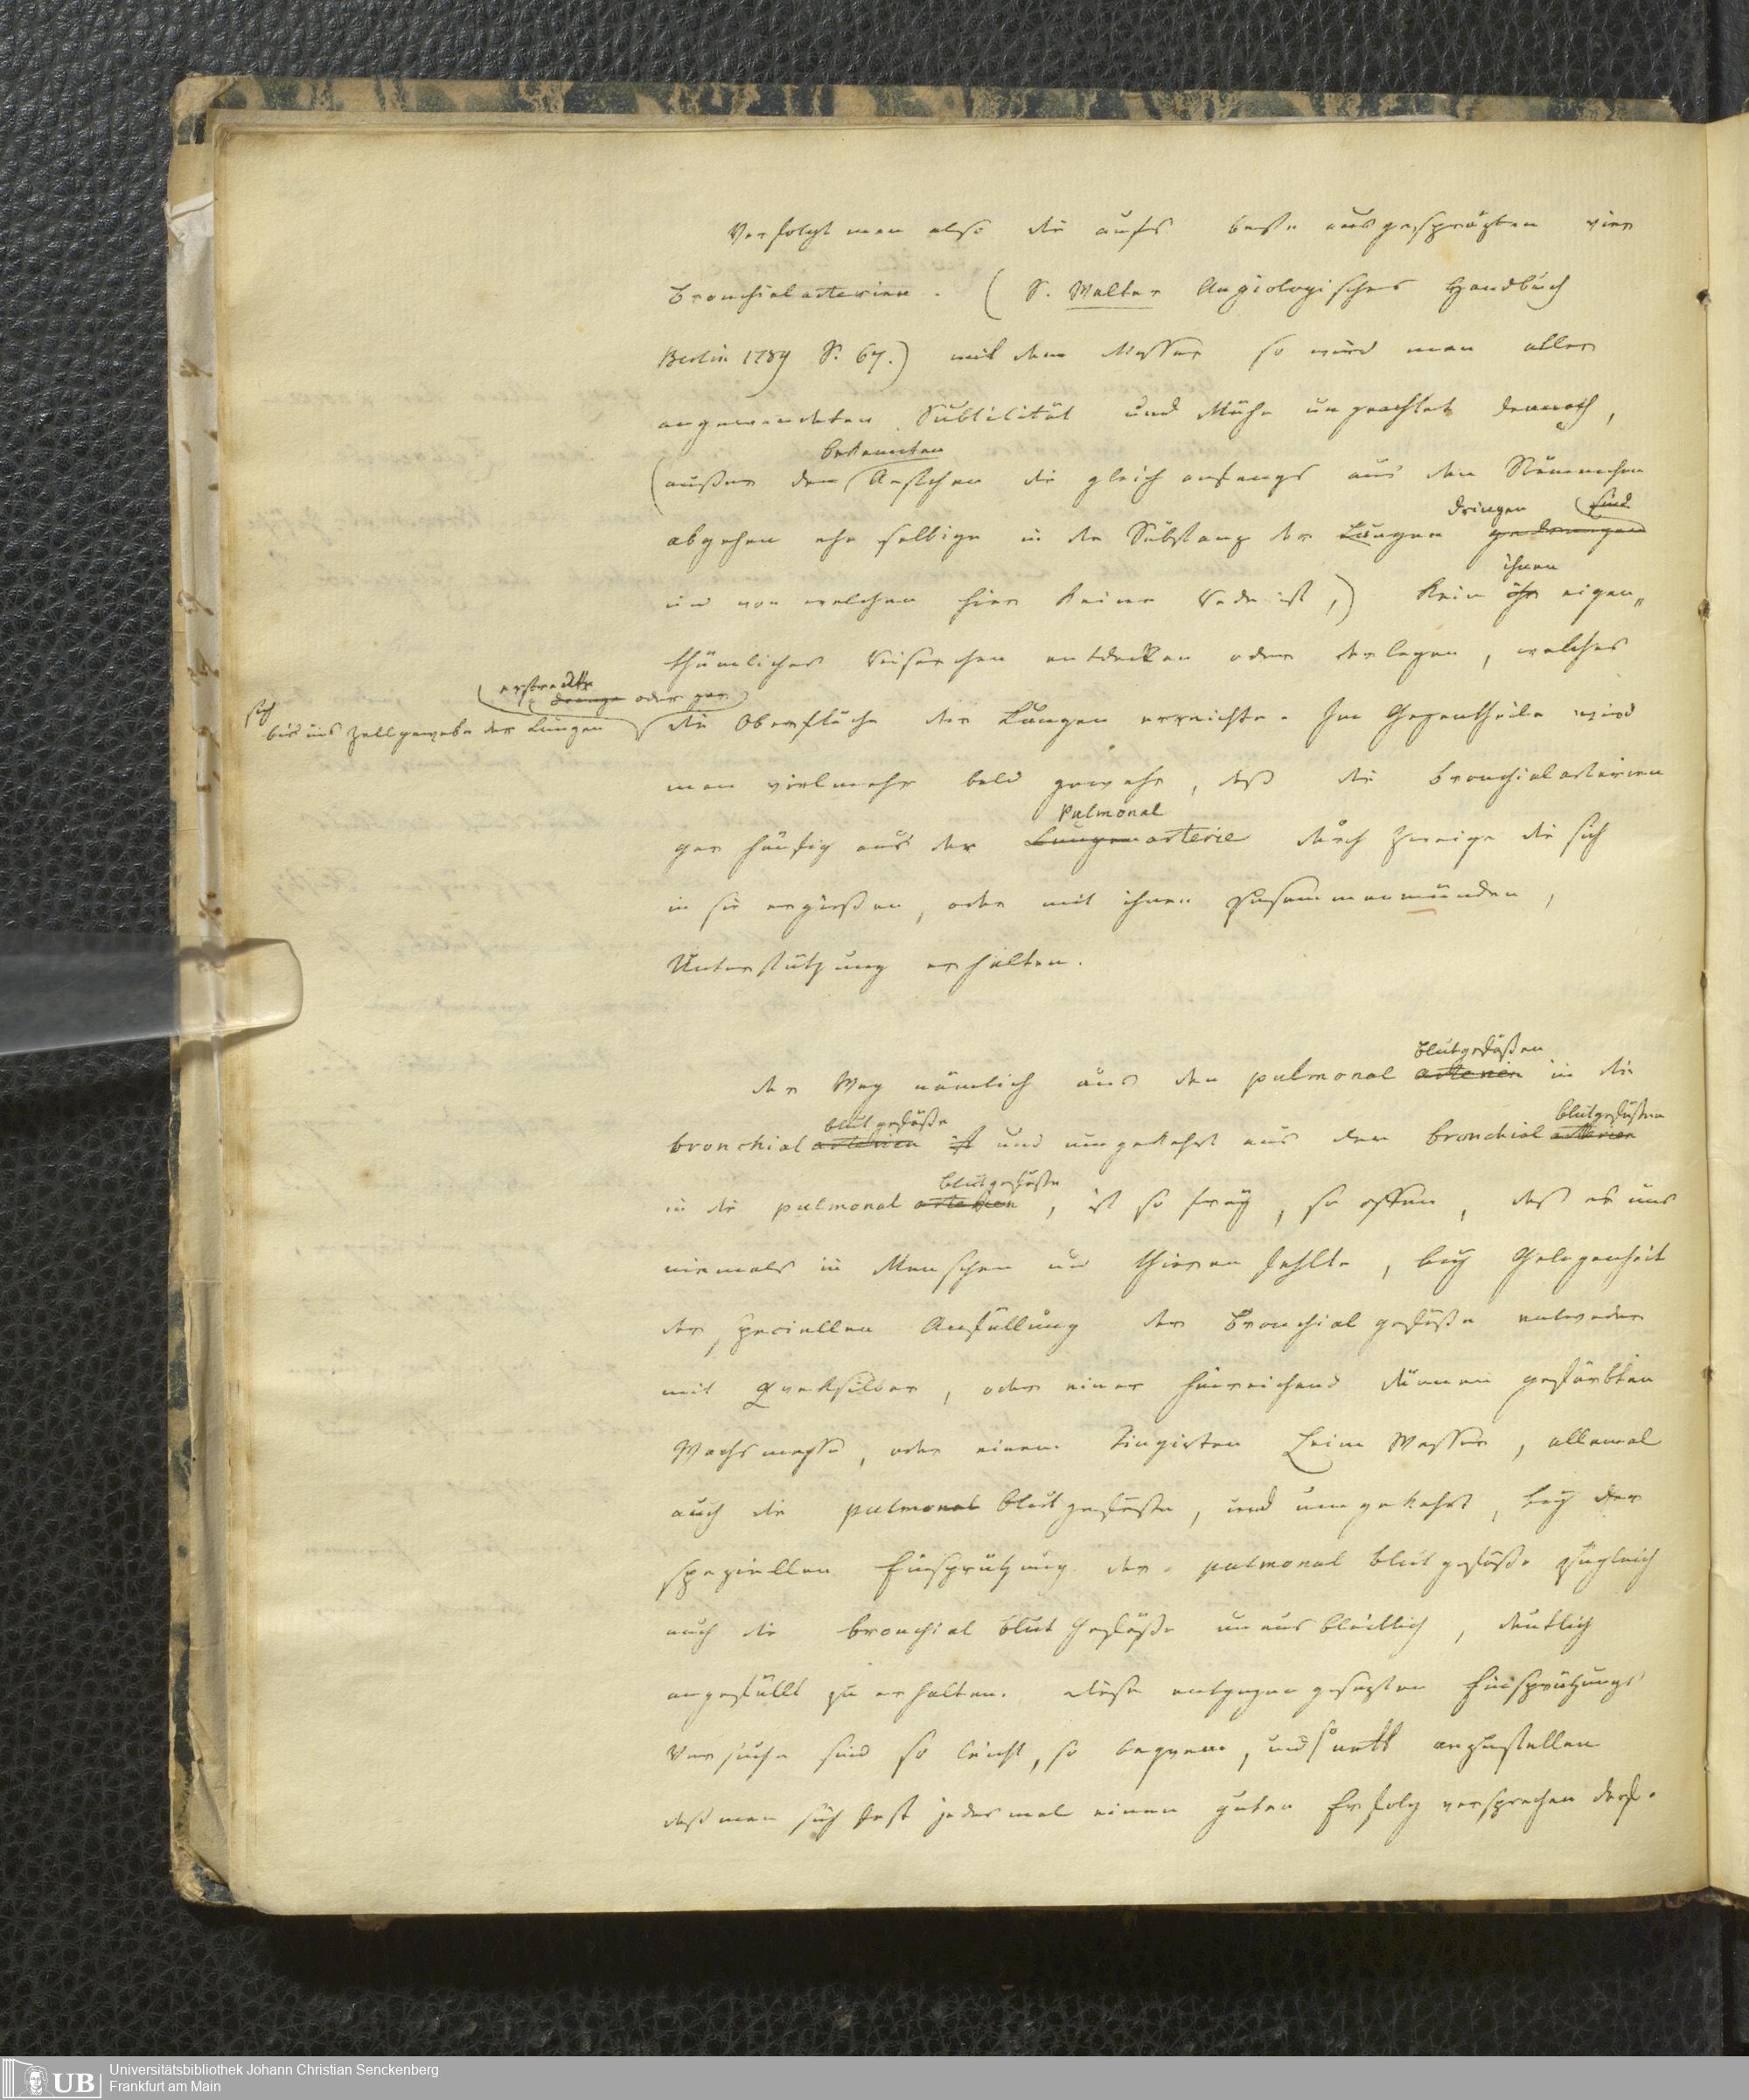 Verfolgt man also die aufs beste ausgesprützten vier
Bronchialarterien. (S. Walter Angiologisches Handbuch
Berlin 1789 S. 67.) mit dem Messer so wird man aller
angewendeten Subtilität und Mühe ungeachtet dennoch,
bekannten
(außer den Aestchen die gleich anfangs aus den Stämmchen
dringen sind
abgehen ehe selbige in die Substanz der Lungen gedrungen
ihnen
und von welchen hier keine Rede ist,) kein ihr eigen„
thümliches Reischen entdecken oder darlegen, welches
erstreckte
drange oder gar
sich
bis ins Zellgewebe der Lungen
die Oberfläche der Lungen erreichte. Im Gegentheile wird
man vielmehr bald gewahr, daß die Bronchialarterien
Pulmonal
gar häufig aus der Lungenarterie durch Zweige die sich
in sie ergießen, oder mit ihnen zusammenmünden,
Unterstützung erhalten.
Blutgefäßen
der Weg nämlich aus den pulmonal arterien in die
blutgefäße blutgefäßen
bronchial arterien ist und umgekehrt aus den bronchial arterien
blutgefäße
in die pulmonal arterien, ist so frey, so offen, daß es uns
niemals in Menschen und Thieren fehlte, bey Gelegenheit
der speciellen Anfüllung der Bronchial gefäße entweder
mit Queksilber, oder einer hinreichend dünnen gefärbten
Wachsmasse, oder einem tingirten Leim Wasser, allemal
auch die pulmonal blutgefäße, und umgekehrt, bey der
speziellen Einsprützung der pulmonal blutgefäße zugleich
auch die bronchial blut Gefäße unausbleiblich, deutlich
angefüllt zu erhalten. Diese entgegen gesezten Einsprützungs
Versuche sind so leicht, so bequem, und so nett anzustellen
daß man sich fast jedes mal einen guten Erfolg versprechen darf.
UB
Universitätsbibliothek Johann Christian Senckenberg
Frankfurt am Main